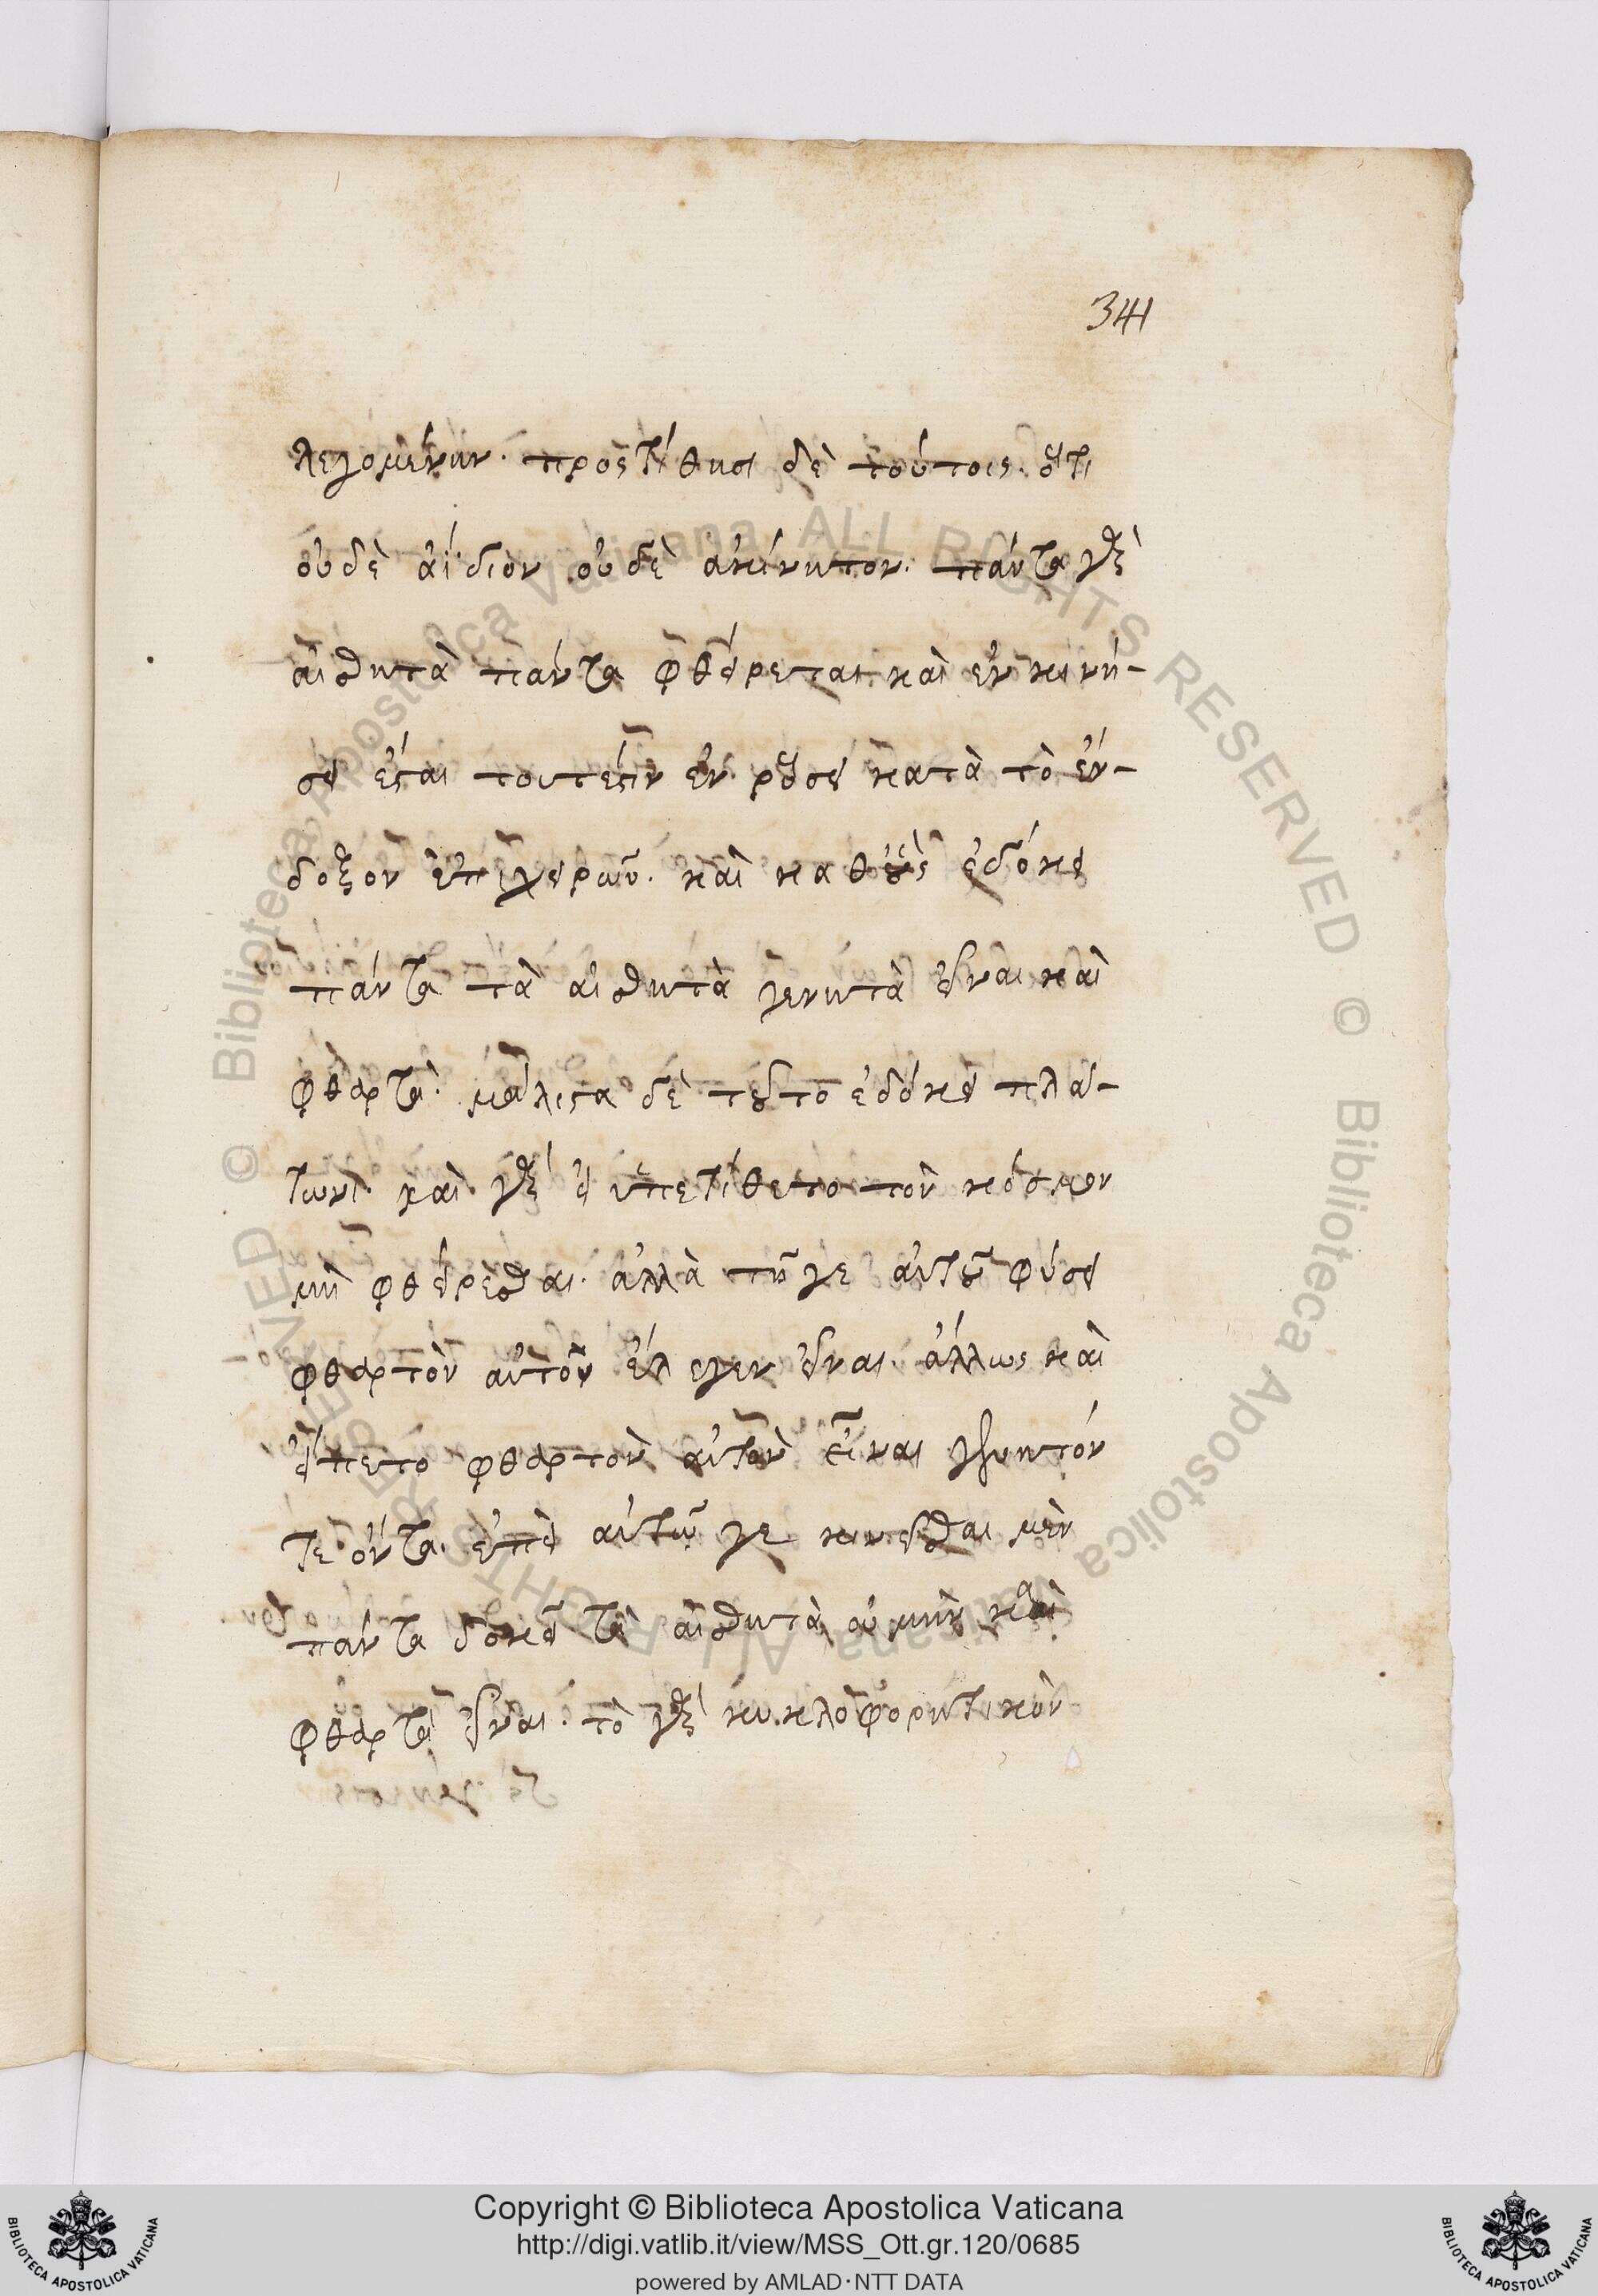 341
λεγομένην. προςτίθησι δὲ τούτοις. ὅτι
οὐδὲ ἀΐδιον οὐδὲ ἀκίνητον. πάντα γὰρ
αἰσθητὰ πάντα φθείρεται καὶ ἐν κινή-
σει ἔσται τουτέστιν ἐν ῥύσει κατὰ τὸ ἔν-
δοξον ἐπιχειρῶν. καὶ καθ' οὓς ἐδόκει
πάντα τὰ αἰσθητὰ γενητὰ εἶναι καὶ
φθαρτά. μάλιστα δὲ τοῦτο ἐδόκει πλά-
τωνι. καὶ γὰρ εἰ ὑπετίθετο τὸν κόσμον
μὴ φθείρεσθαι. ἀλλὰ τῇ γε αὐτοῦ φύσει
φθαρτὸν αὐτὸν ἔλεγεν εἶναι. ἄλλως καὶ
εἵπετο φθαρτὸν αὐτὸν εἶναι γενητόν
τε ὄντα. ἐπεὶ αὐτῷ γε κινεῖσθαι μὲν
πάντα δοκεῖ τὰ αἰσθητὰ, οὐ μὴν καὶ
φθαρτὰ εἶναι. τὸ γὰρ κυκλοφορητικὸν
Copyright © Biblioteca Apostolica Vaticana
http://digi.vatlib.it/view/MSS_Ott.gr.120/0685
powered by AMLAD·NTT DATA
BIBLIOTECA APOSTOLICA VATICANA
BIBLIOTECA APOSTOLICA VATICANA
© Biblioteca Apostolica Vaticana ALL RIGHTS RESERVED © Biblioteca Apostolica Vaticana ALL RIGHTS RESERVED